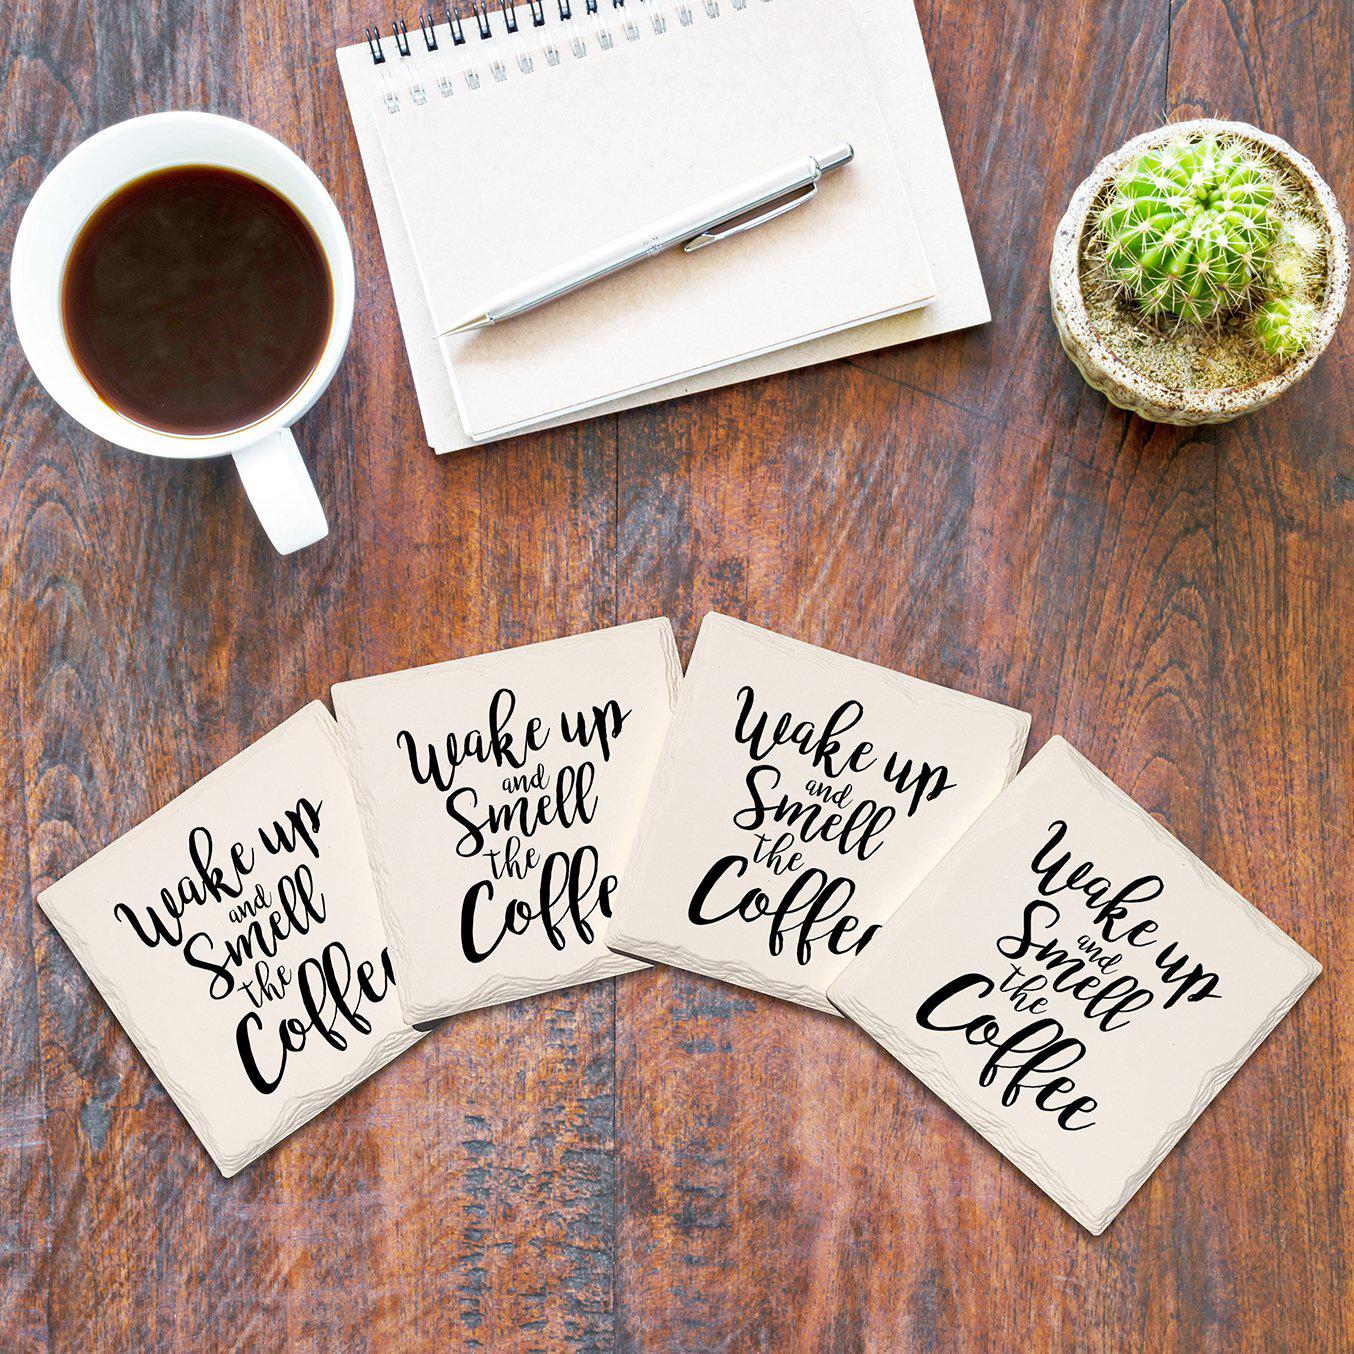 Wake up
and
Smell
the
Coffee
Wake up
and
Smell
the
Coffe
Wake up
and
Smell
the
Coffee
Wake up
and
Smell
the
Coffee